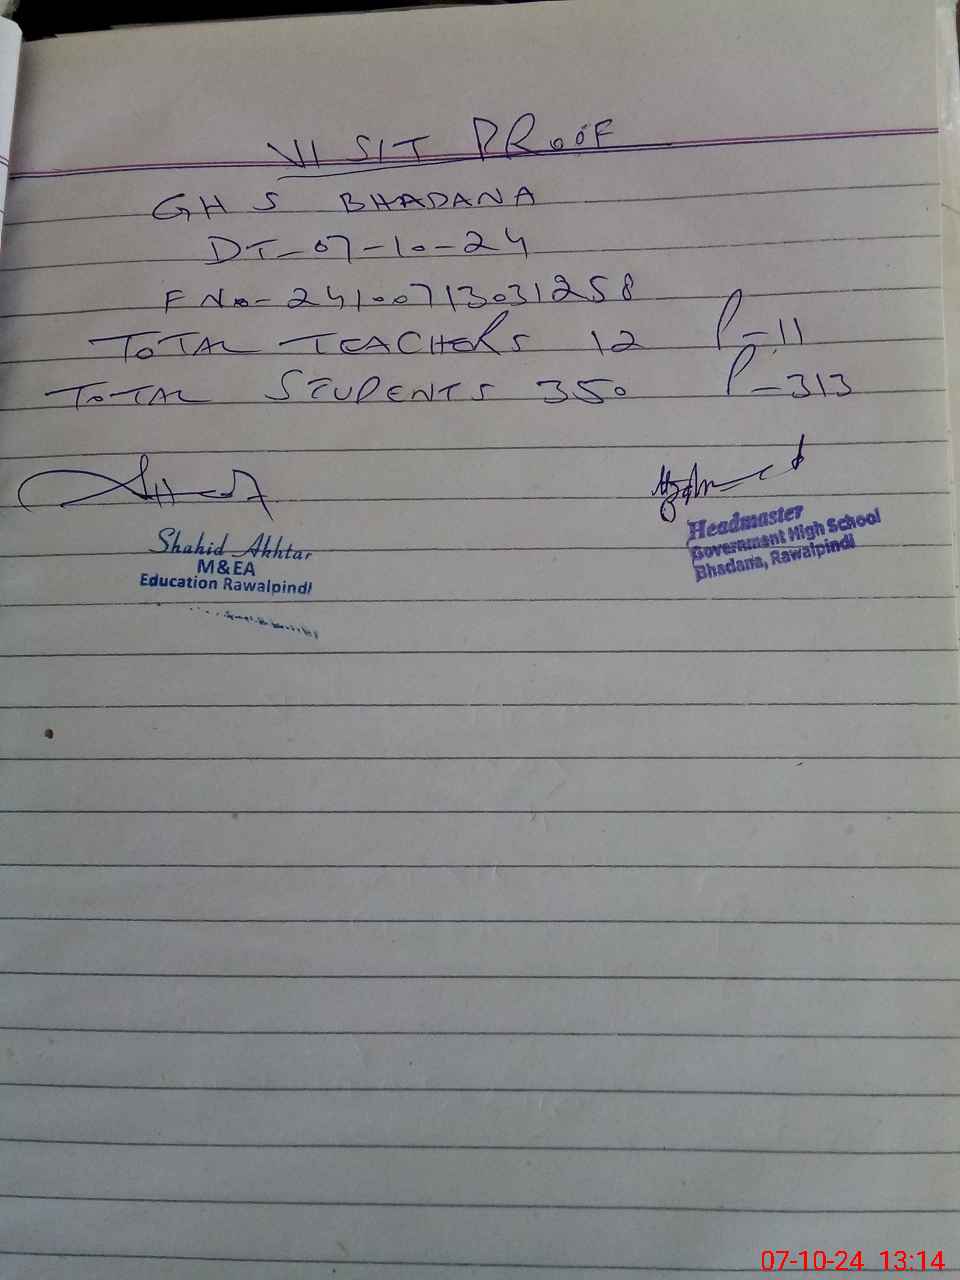 VISIT PROOF
GHS BHADANA
DT-07-10-24
F No-24100713031258
TOTAL TEACHERS 12 P-11
TOTAL STUDENTS 350 P-313
Shahid Akhtar
M&EA
Education Rawalpindi
Headmaster
Government High School
Bhadana, Rawalpindi
07-10-24 13:14